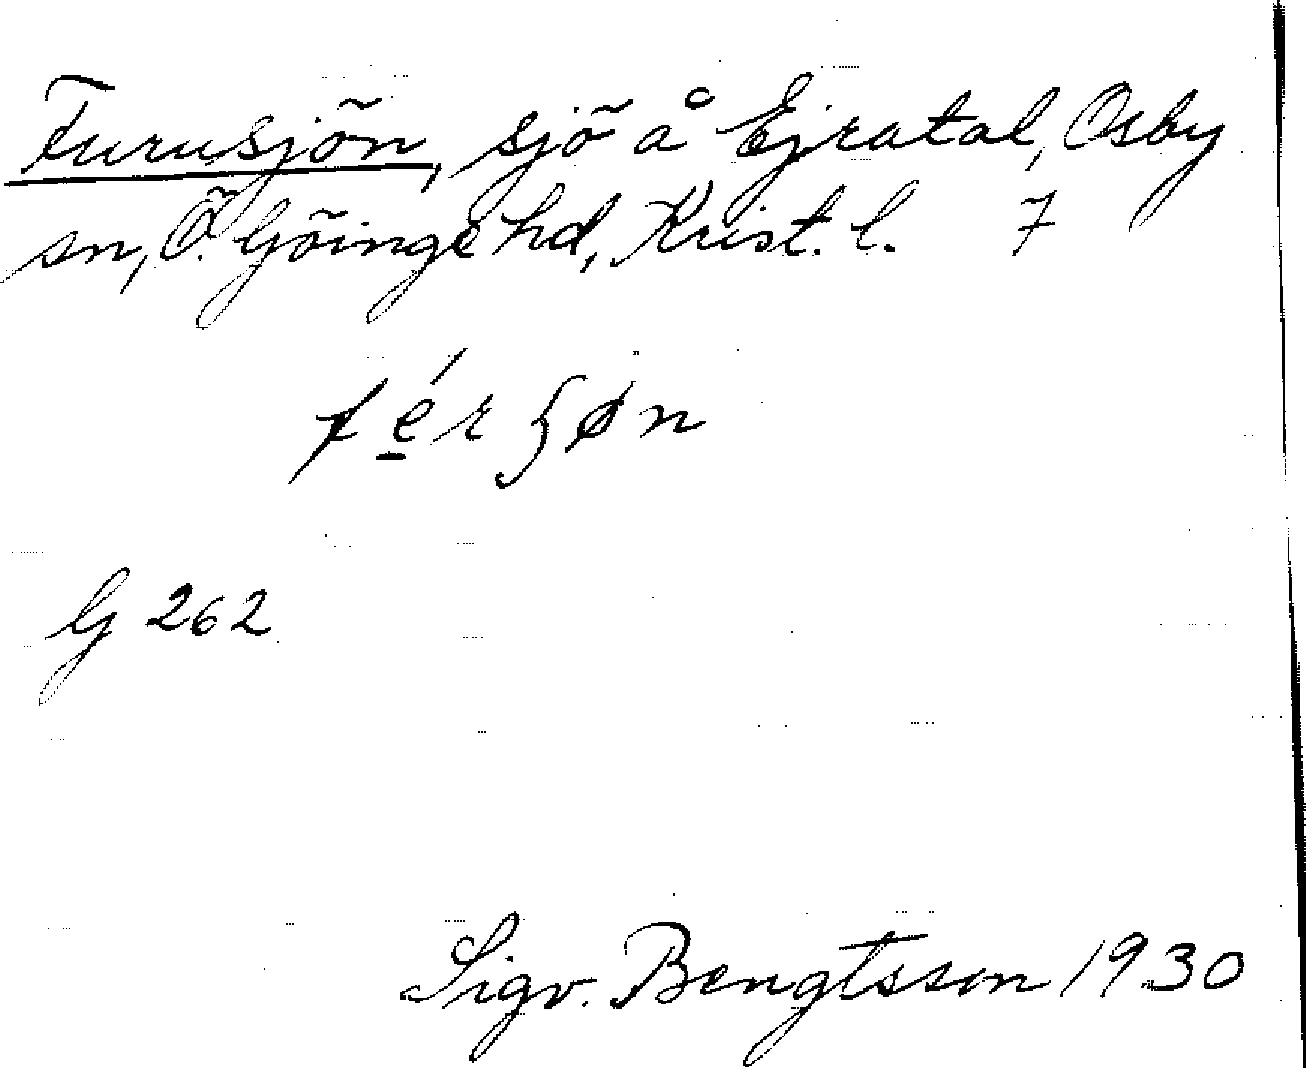 Furusjön, sjö å Ejratal, Osby
sn, Ö. Göinge hd, Krist. l. 7
fé̲rʃøn
G 262
Sigv. Bengtsson 1930